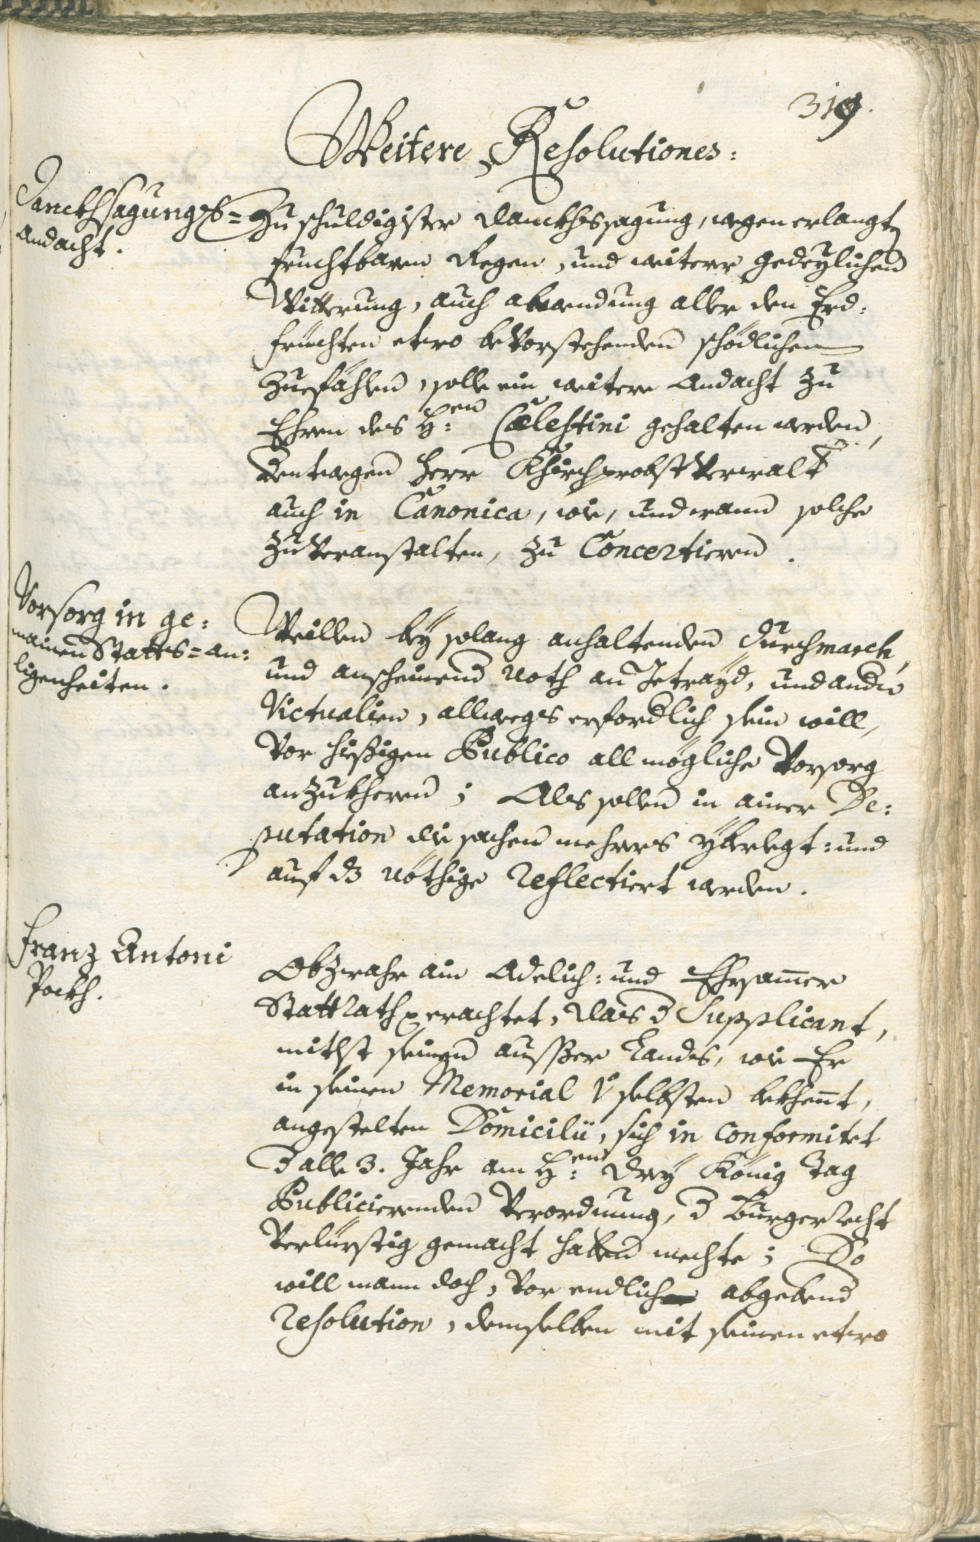 319.
Weitere Resolutiones:
Danckhsagungs=
Andacht.
Zu schuldigister Danckhsagung, wegen erlangt
fruchtbarn Regen, und weiterr gedeylichen
Witterung, auch abwendung aller den Erd:
früchten etwo bevorstehenden schödlichen
Zuefählen, solle ein weitere Andacht zu
Ehren des H: en Cælestini gehalten werden,
Dentwegen Herr Khirchprobst Verwalt
auch in Canonica, wie, und wann solche
zu Veranstalten, zu Concertieren.
Vorsorg in ge:
mainen Statts=an:
ligenheiten.
Weillen bey solang anhaltenden Durchmarch,
und anscheinend Noth an Getrayd, und andern
Victualien, allweegs erfordlich sein will,
Vor hießigen Publico all mögliche Vorsorg
anzukheren; Als sollen in ainer De:
putation die sachen mehrers yberlegt: und
auf dz nöthige reflectiert werden.
Franz Antoni
Pockh.
Obzwahr ain Adelich: und Ehrsamer
Stattrath erachtet, dass d Supplicant,
mitlst seinen ausser Landes, wie Er
in seinen Memorial selbsten bekhent,
angestelten Domicilii, sich in conformitet
d alle 3. Jahr am H: en Drey König Tag
Publicierenden Verordnung, d Burgerrecht
Verlürstig gemacht haben mechte; So
will mann doch, Vor endlich abgebend
Resolution, demselben mit seinen etwo